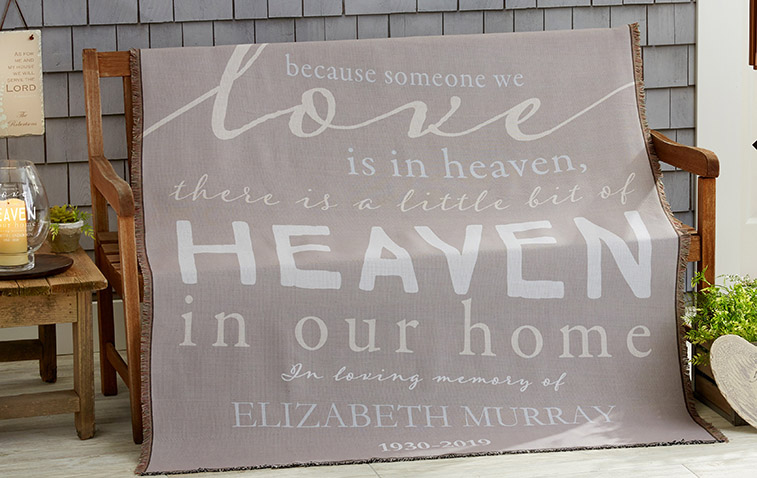 AS FOR
ME AND
MY HOUSE
WE WILL
SERVE THE
LORD
The Robertsons
love
HEAVEN
because someone we
love
is in heaven,
there is a little bit of
HEAVEN
in our home
In loving memory of
ELIZABETH MURRAY
1930-2019